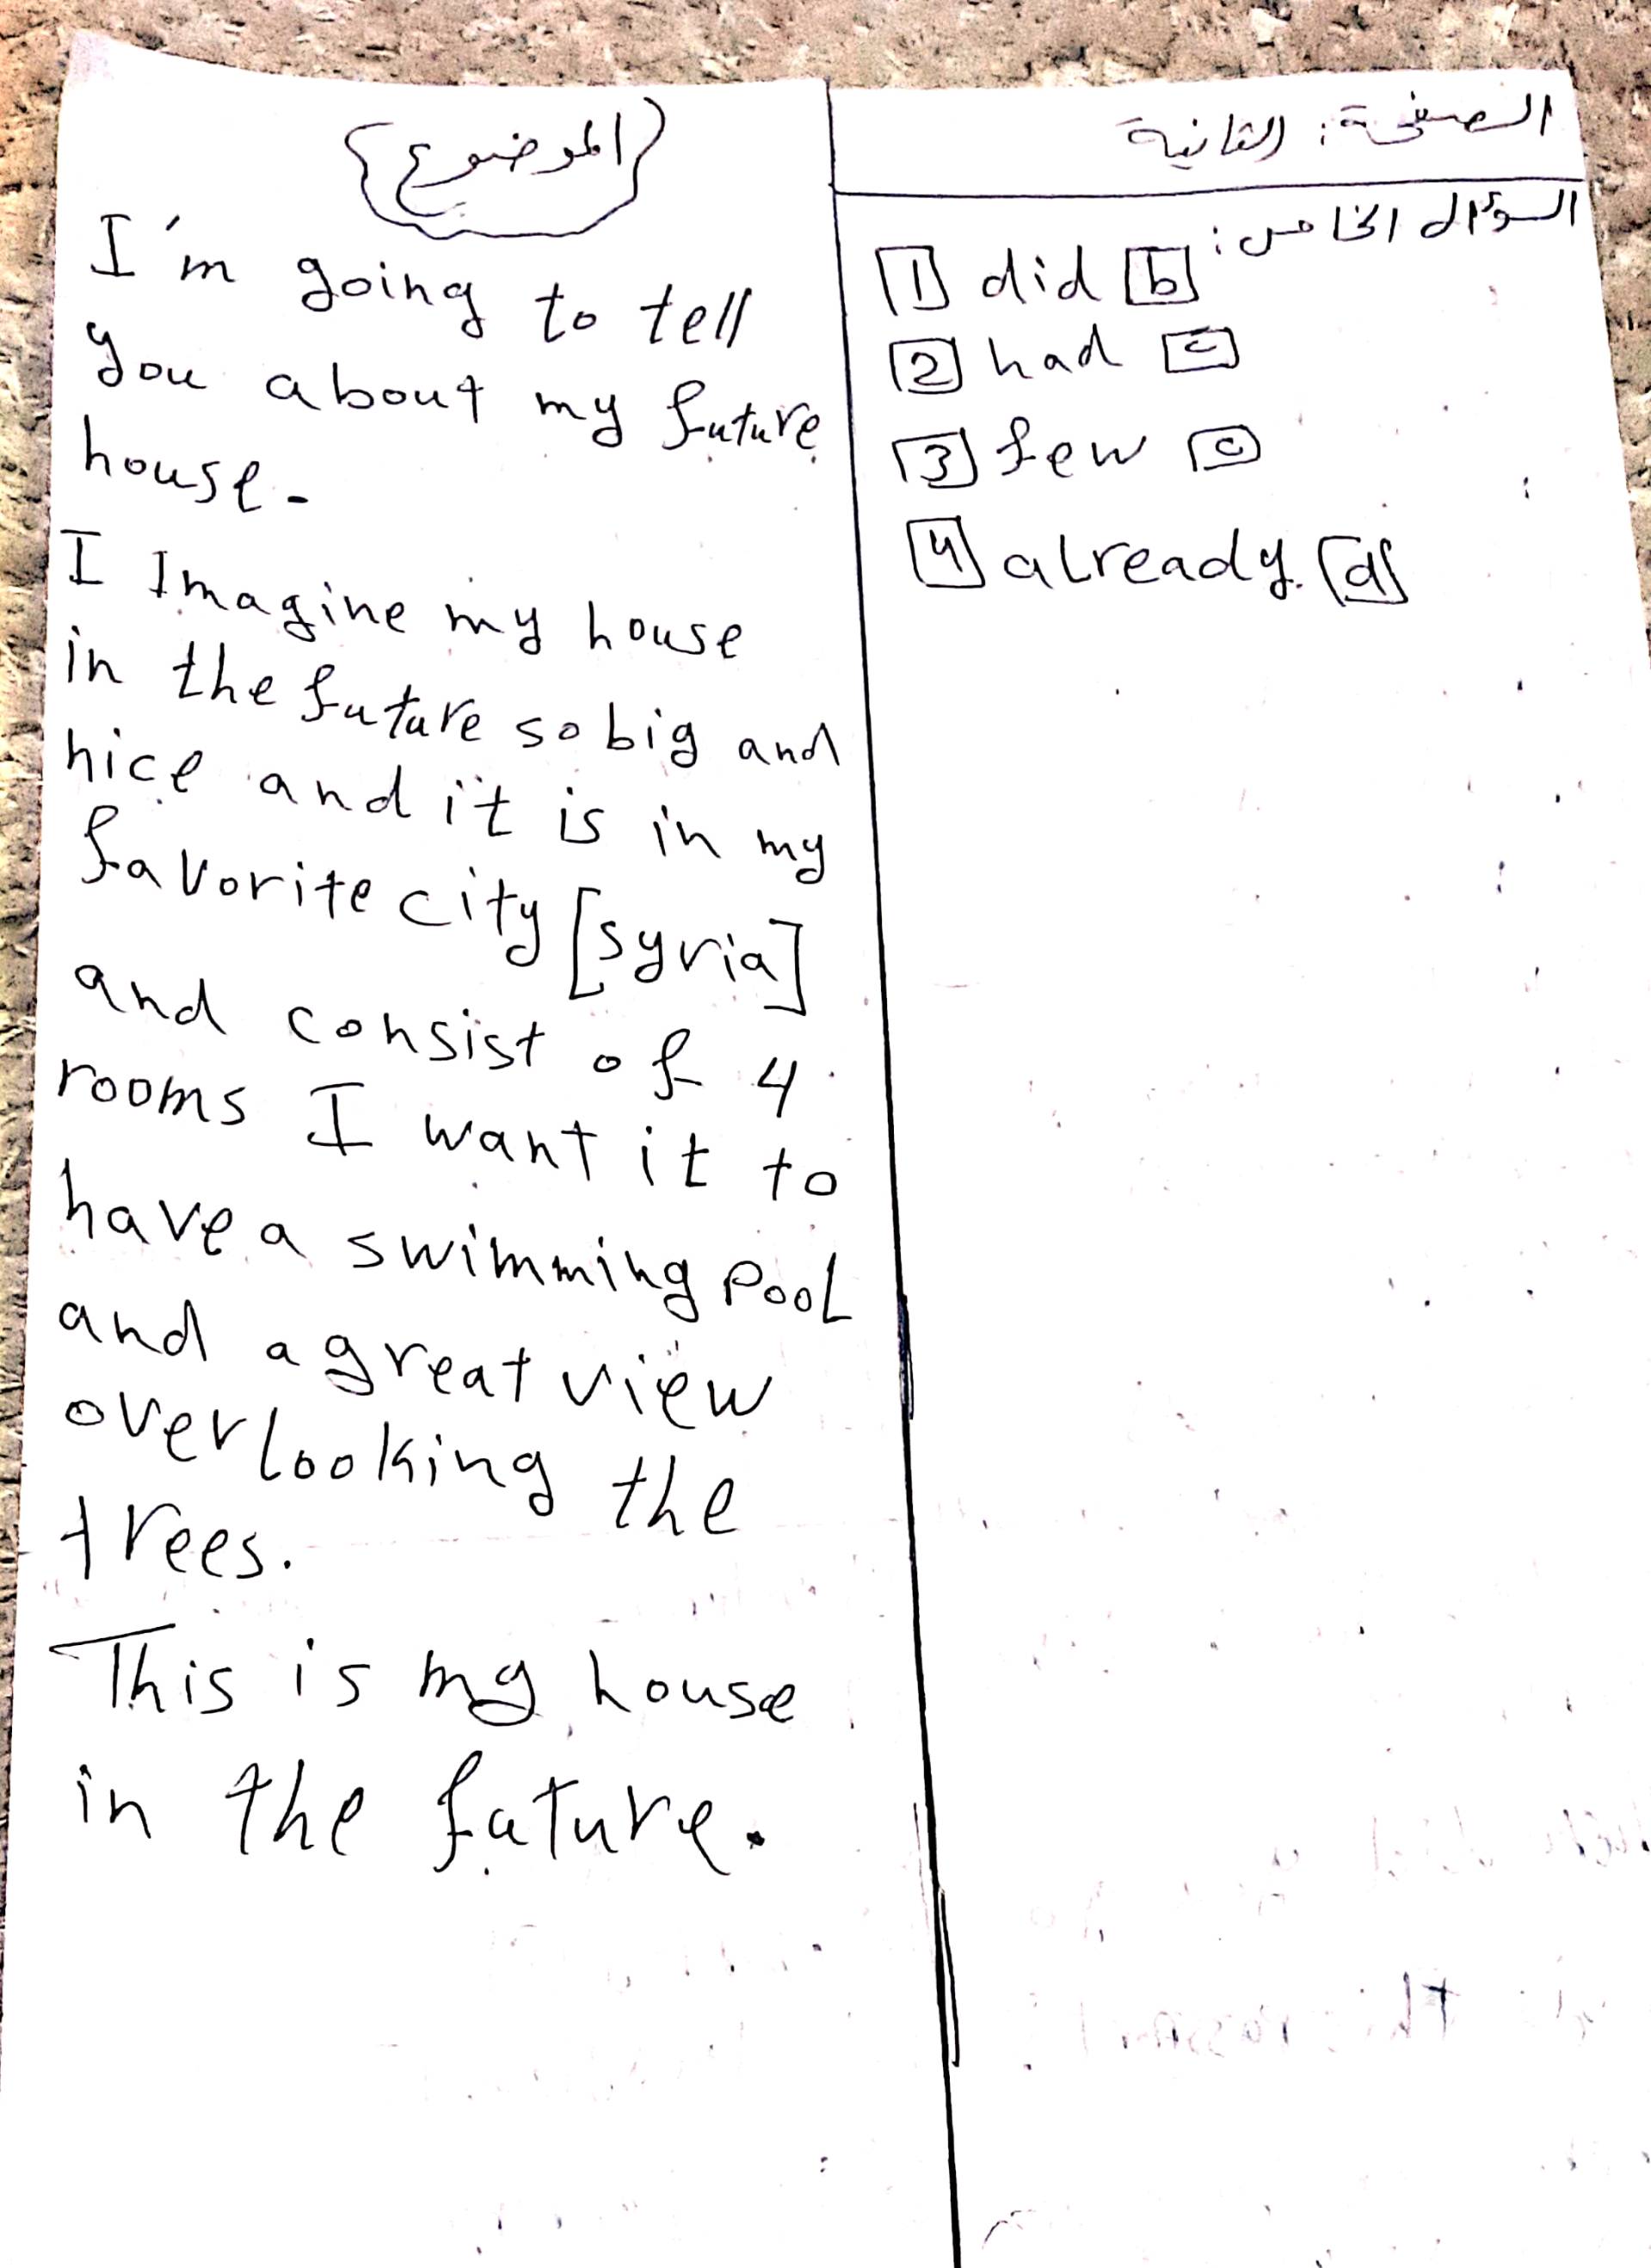 الصفحة: الثانية
السؤال الخامس:
1 did b
2 had c
3 few c
4 already. d
{الموضوع}
I'm going to tell
you about my future
house.
I Imagine my house
in the future so big and
nice and it is in my
favorite city [syria]
and consist of 4
rooms I want it to
have a swimming pool
and a great view
overlooking the
trees.
This is my house
in the future.